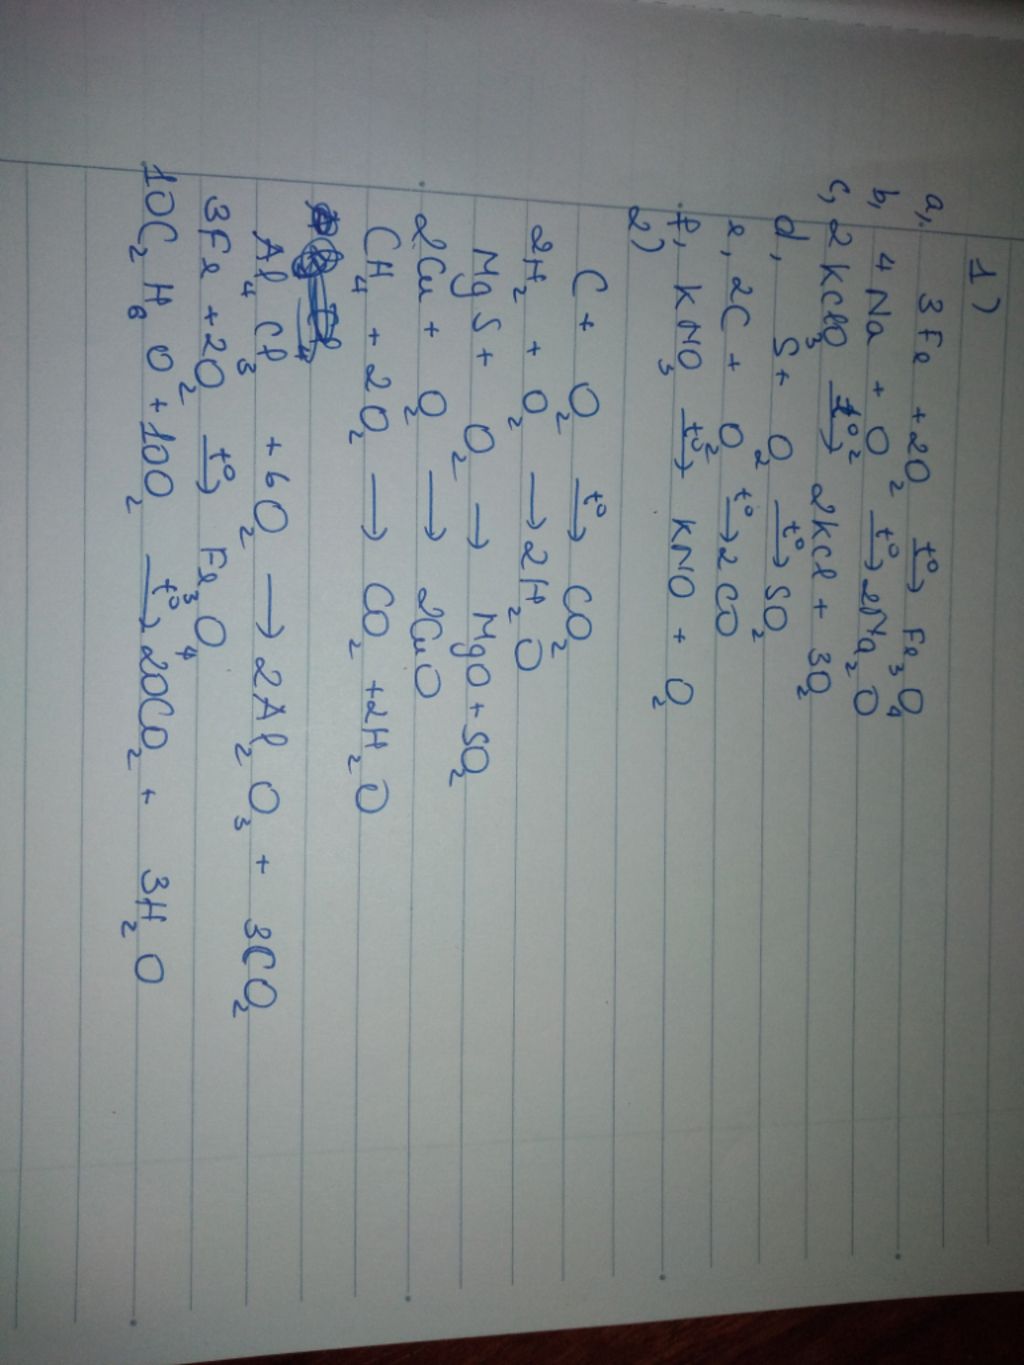 1)
a, 3Fe + 2O₂ —t°→ Fe₃O₄
b, 4Na + O₂ —t°→ 2Na₂O
c, 2KClO₃ —t°→ 2KCl + 3O₂
d, S + O₂ —t°→ SO₂
e, 2C + O₂ —t°→ 2CO
f, KNO₃ —t°→ KNO + O₂
2)
C + O₂ —t°→ CO₂
2H₂ + O₂ → 2H₂O
MgS + O₂ → MgO + SO₂
2Cu + O₂ → 2CuO
CH₄ + 2O₂ → CO₂ + 2H₂O
Al₄Cl₃ + 6O₂ → 2Al₂O₃ + 3CO₂
3Fe + 2O₂ —t°→ Fe₃O₄
10C₂H₆O + 10O₂ —t°→ 20CO₂ + 3H₂O